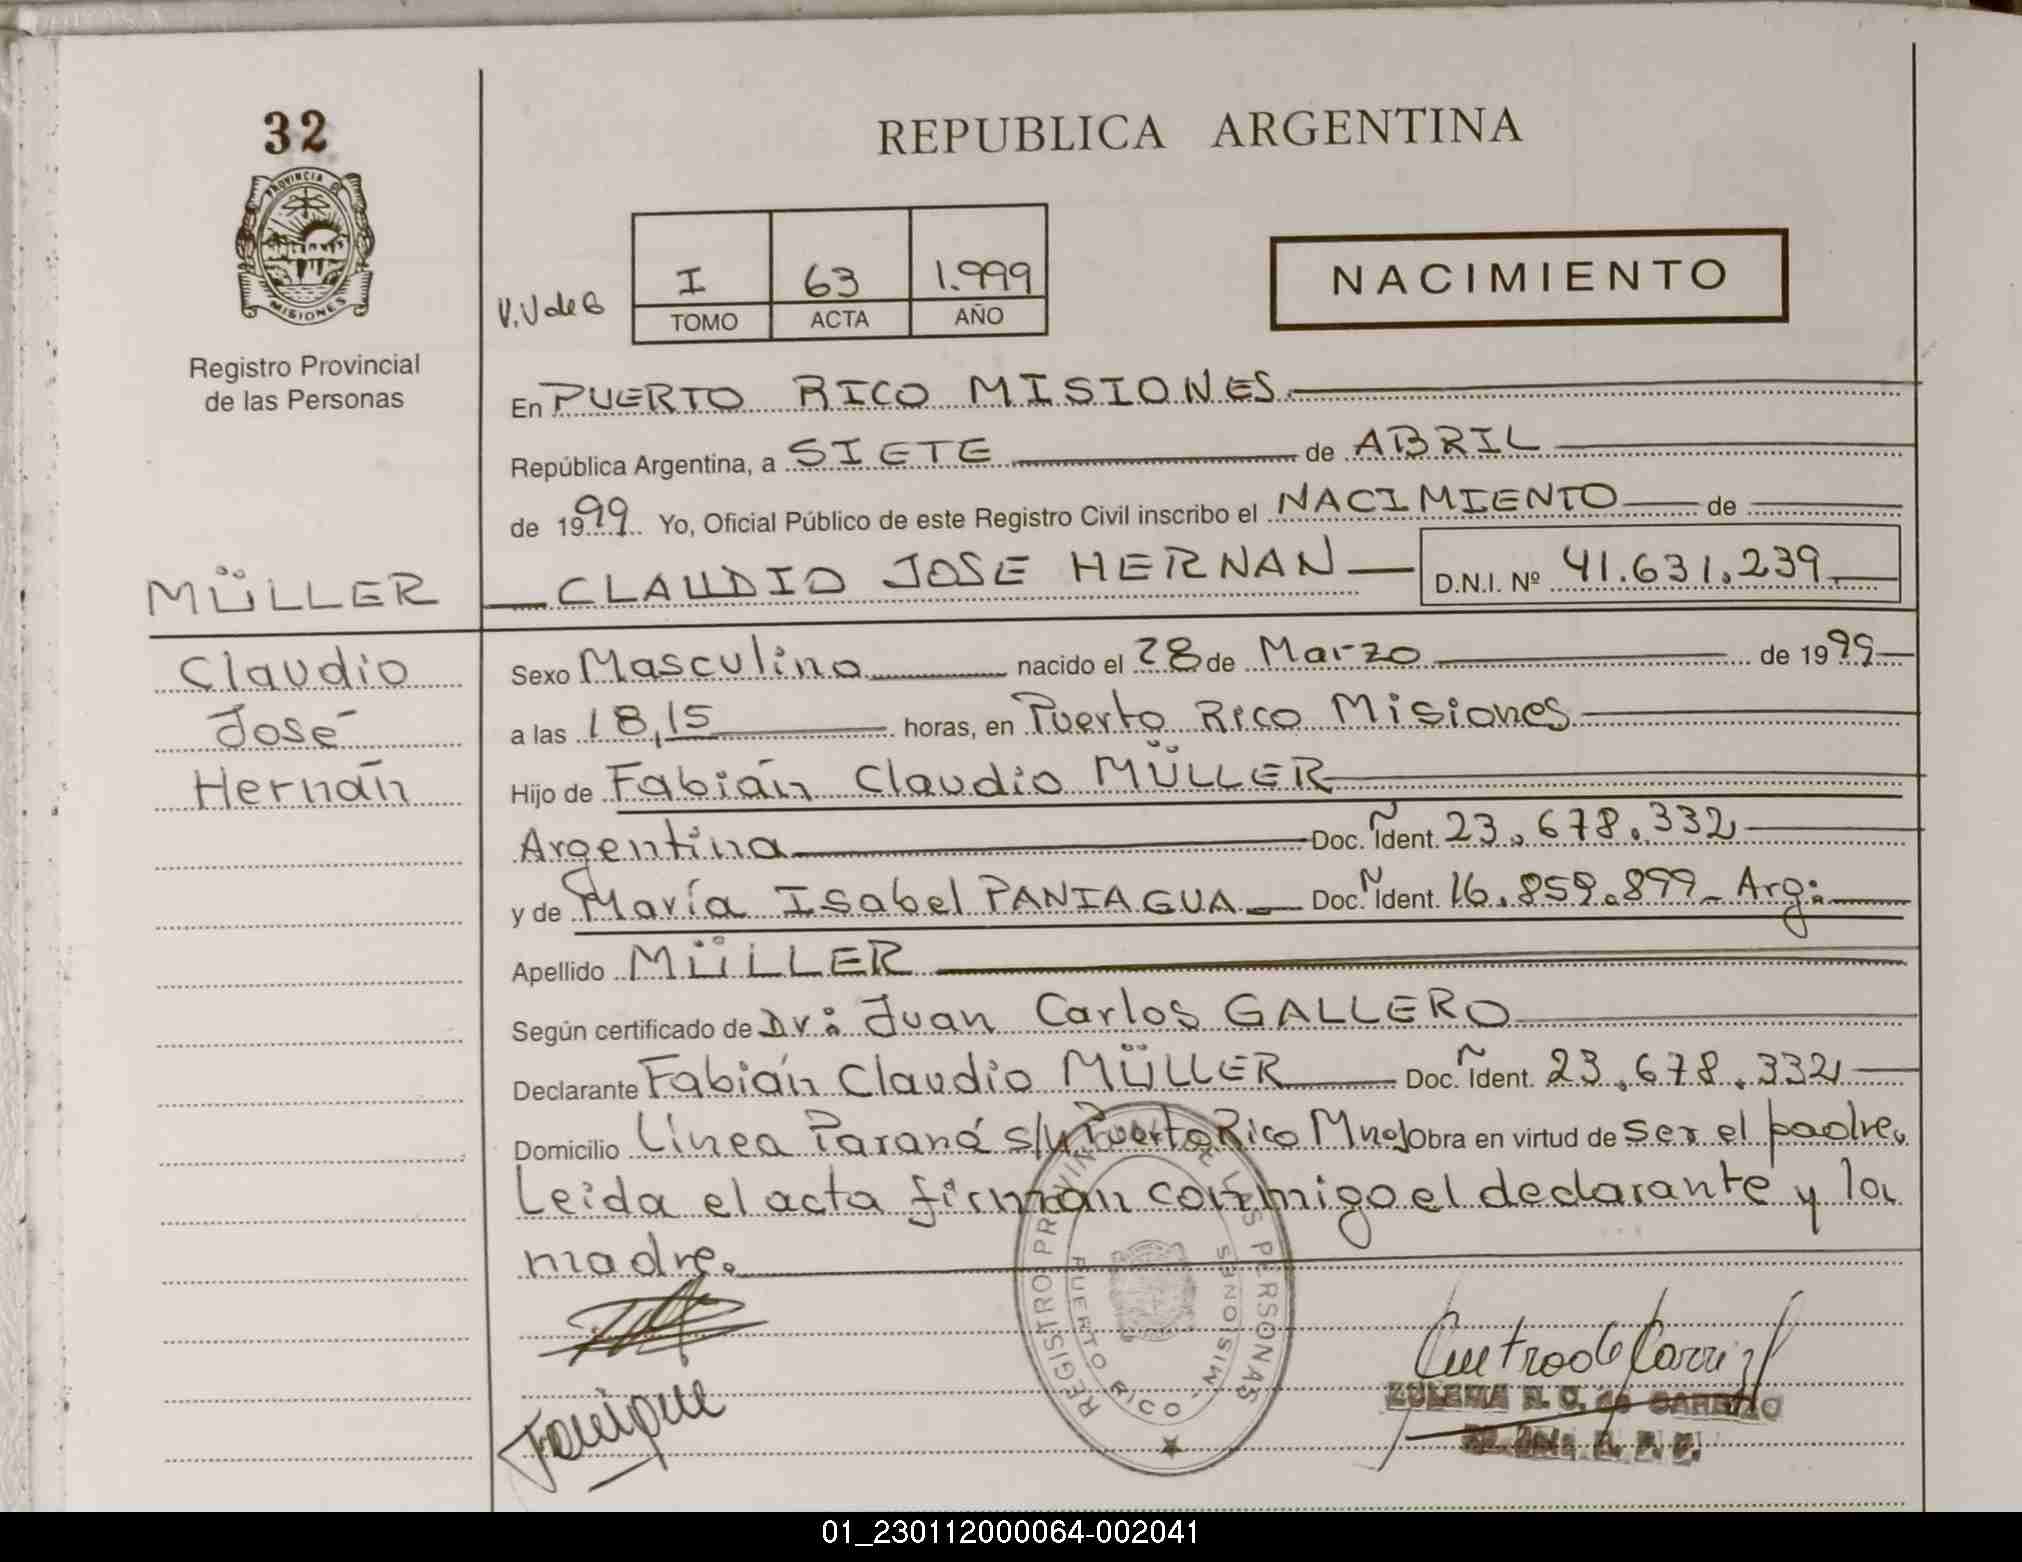 32
REPUBLICA ARGENTINA
PROVINCIA DE
MISIONES
Registro Provincial
de las Personas
I 63 1.999
TOMO ACTA AÑO
NACIMIENTO
En PUERTO RICO MISIONES
República Argentina, a SIETE de ABRIL
de 1999 Yo, Oficial Público de este Registro Civil inscribo el NACIMIENTO de
MÜLLER CLAUDIO JOSE HERNAN D.N.I. Nº 41.631.239
Claudio
José
Hernán
Sexo Masculino nacido el 28 de Marzo de 1999
a las 18,15 horas, en Puerto Rico Misiones
Hijo de Fabián Claudio MÜLLER
Argentina Doc. Ñ Ident. 23.678.332
y de María Isabel PANIAGUA Doc. N Ident. 16.859.899 Arg:
Apellido MÜLLER
Según certificado de Dr: Juan Carlos GALLERO
Declarante Fabián Claudio MÜLLER Doc. Ñ Ident. 23.678.332
Domicilio Línea Paraná s/N Puerto Rico Mnes Obra en virtud de ser el padre.
Leida el acta firman conmigo el declarante y la
madre.
REGISTRO PROVINCIAL DE LAS PERSONAS
PUERTO RICO - MISIONES
ZULEMA N. C. de CARRIZO
01_230112000064-002041